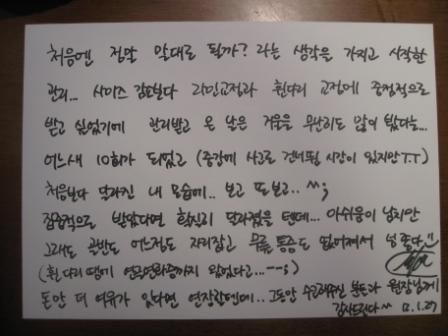 처음엔 정말 말대로 될까? 라는 생각을 가지고 시작한
관리... 사이즈 감소보다 라인교정과 휜다리 교정에 중점적으로
받고 싶었기에 관리받고 온 날은 거울을 무난히도 많이 봤다는...
어느새 10회가 되었고 (중간에 사고로 건너뛴 시간이 있지만 T.T)
처음보다 달라진 내 모습에.. 보고 또 보고.. ^^;
집중적으로 받았다면 확실히 달라졌을 텐데... 아쉬움이 남지만
그래도 골반도 어느정도 자리잡고 무릎 통증도 없어져서 넘 좋다..!!
(휜다리 땜에 연골연화증까지 왔었다고...--;)
돈만 더 여유가 있다면 연장할텐데.. 그동안 수고해주신 분들과 원장님께
감사드린다 ^^ 12.1.27